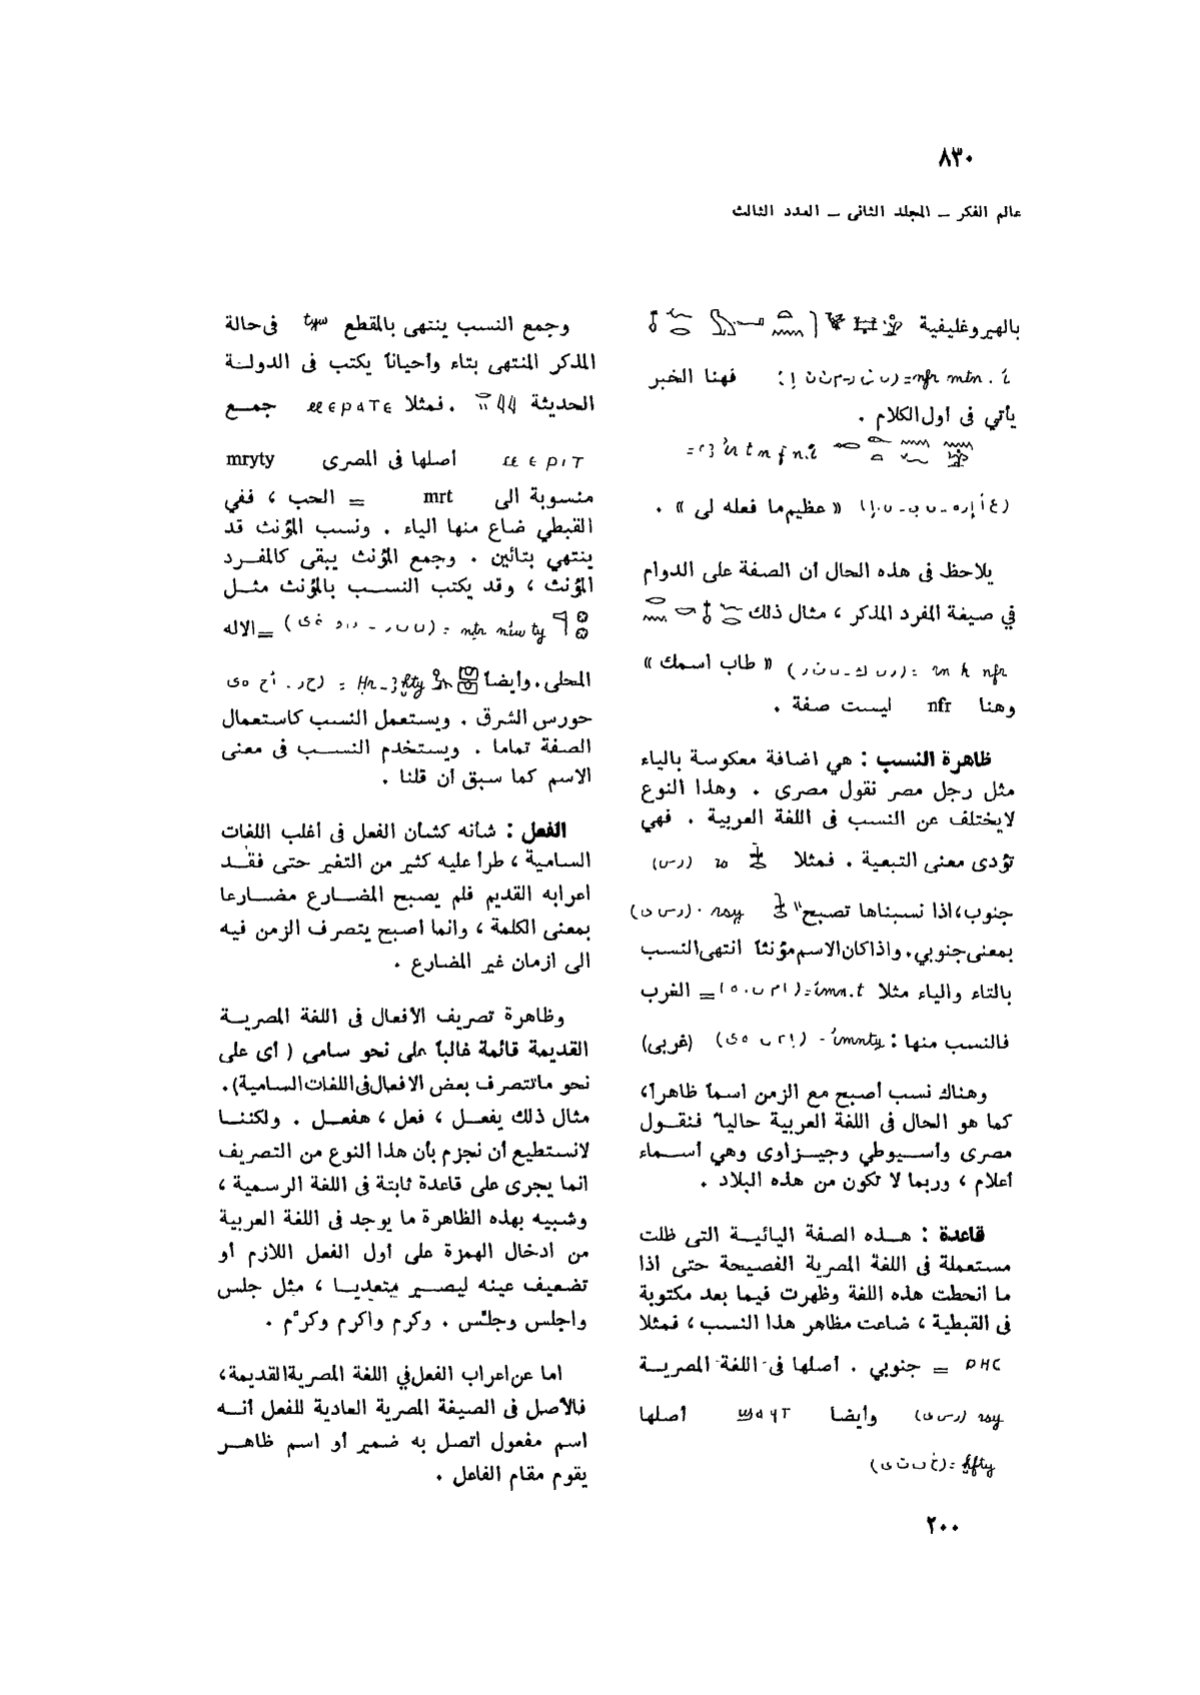 ٨٣٠
عالم الفكر – المجلد الثانى – العدد الثالث
بالهيروغليفية
nfr mtn. i فهنا الخبر
يأتي فى أول الكلام .
« عظيم ما فعله لى » .
يلاحظ فى هذه الحال أن الصفة على الدوام
في صيغة المفرد المذكر ، مثال ذلك
nfr « طاب اسمك »
وهنا nfr ليست صفة .
ظاهرة النسب : هي اضافة معكوسة بالياء
مثل رجل مصر نقول مصرى . وهذا النوع
لايختلف عن النسب فى اللغة العربية . فهي
تؤدى معنى التبعية . فمثلا (رس)
جنوب،اذا نسبناها تصبح rsy . (رسى)
بمعنى جنوبي. واذاكان الاسم مؤنثا انتهى النسب
بالتاء والياء مثلا imn.t = الغرب
فالنسب منها : imnty (غربى)
وهناك نسب أصبح مع الزمن اسماً ظاهراً،
كما هو الحال فى اللغة العربية حالياً فنقـول
مصرى وأسـيوطي وجيـزاوى وهي أسـماء
أعلام ، وربما لا تكون من هذه البلاد .
قاعدة : هـذه الصفة اليائيـة التى ظلت
مستعملة فى اللغة المصرية الفصيحة حتى اذا
ما انحطت هذه اللغة وظهرت فيما بعد مكتوبة
فى القبطية ، ضاعت مظاهر هذا النسب ، فمثلا
ⲣⲏⲥ = جنوبي . أصلها فى اللغة المصريـة
rsy (رسى) وأيضا أصلها
٢٠٠
وجمع النسب ينتهى بالمقطع tyw فى حالة
المذكر المنتهى بتاء وأحياناً يكتب فى الدولـة
الحديثة . فمثلا ⲙⲉⲣⲁⲧⲉ جمـع
ⲙⲉⲣⲓⲧ أصلها فى المصرى mryty
منسوبة الى mrt = الحب ، ففي
القبطي ضاع منها الياء . ونسب المؤنث قد
ينتهي بتائين . وجمع المؤنث يبقى كالمفـرد
المؤنث ، وقد يكتب النسـب بالمؤنث مثـل
ntr niw ty = الاله
المحلى. وأيضاً
حورس الشرق . ويستعمل النسب كاستعمال
الصفة تماما . ويستخدم النسـب فى معنى
الاسم كما سبق أن قلنا .
الفعل : شأنه كشأن الفعل فى أغلب اللغات
السامية ، طرأ عليه كثير من التغير حتى فقـد
اعرابه القديم فلم يصبح المضـارع مضـارعا
بمعنى الكلمة ، وانما أصبح يتصرف الزمن فيه
الى ازمان غير المضارع .
وظاهرة تصريف الأفعال فى اللغة المصريـة
القديمة قائمة غالباً على نحو سامى ( أى على
نحو ماتتصرف بعض الافعال فى اللغات السامية).
مثال ذلك يفعـل ، فعل ، هفعـل . ولكننـا
لانستطيع أن نجزم بأن هذا النوع من التصريف
انما يجرى على قاعدة ثابتة فى اللغة الرسمية ،
وشبيه بهذه الظاهرة ما يوجد فى اللغة العربية
من ادخال الهمزة على أول الفعل اللازم أو
تضعيف عينه ليصـير متعديـا ، مثل جلس
واجلس وجلّس . وكرم واكرم وكرّم .
اما عن اعراب الفعل في اللغة المصرية القديمة،
فالأصل فى الصيغة المصرية العادية للفعل أنـه
اسم مفعول اتصل به ضمير أو اسم ظاهـر
يقوم مقام الفاعل .